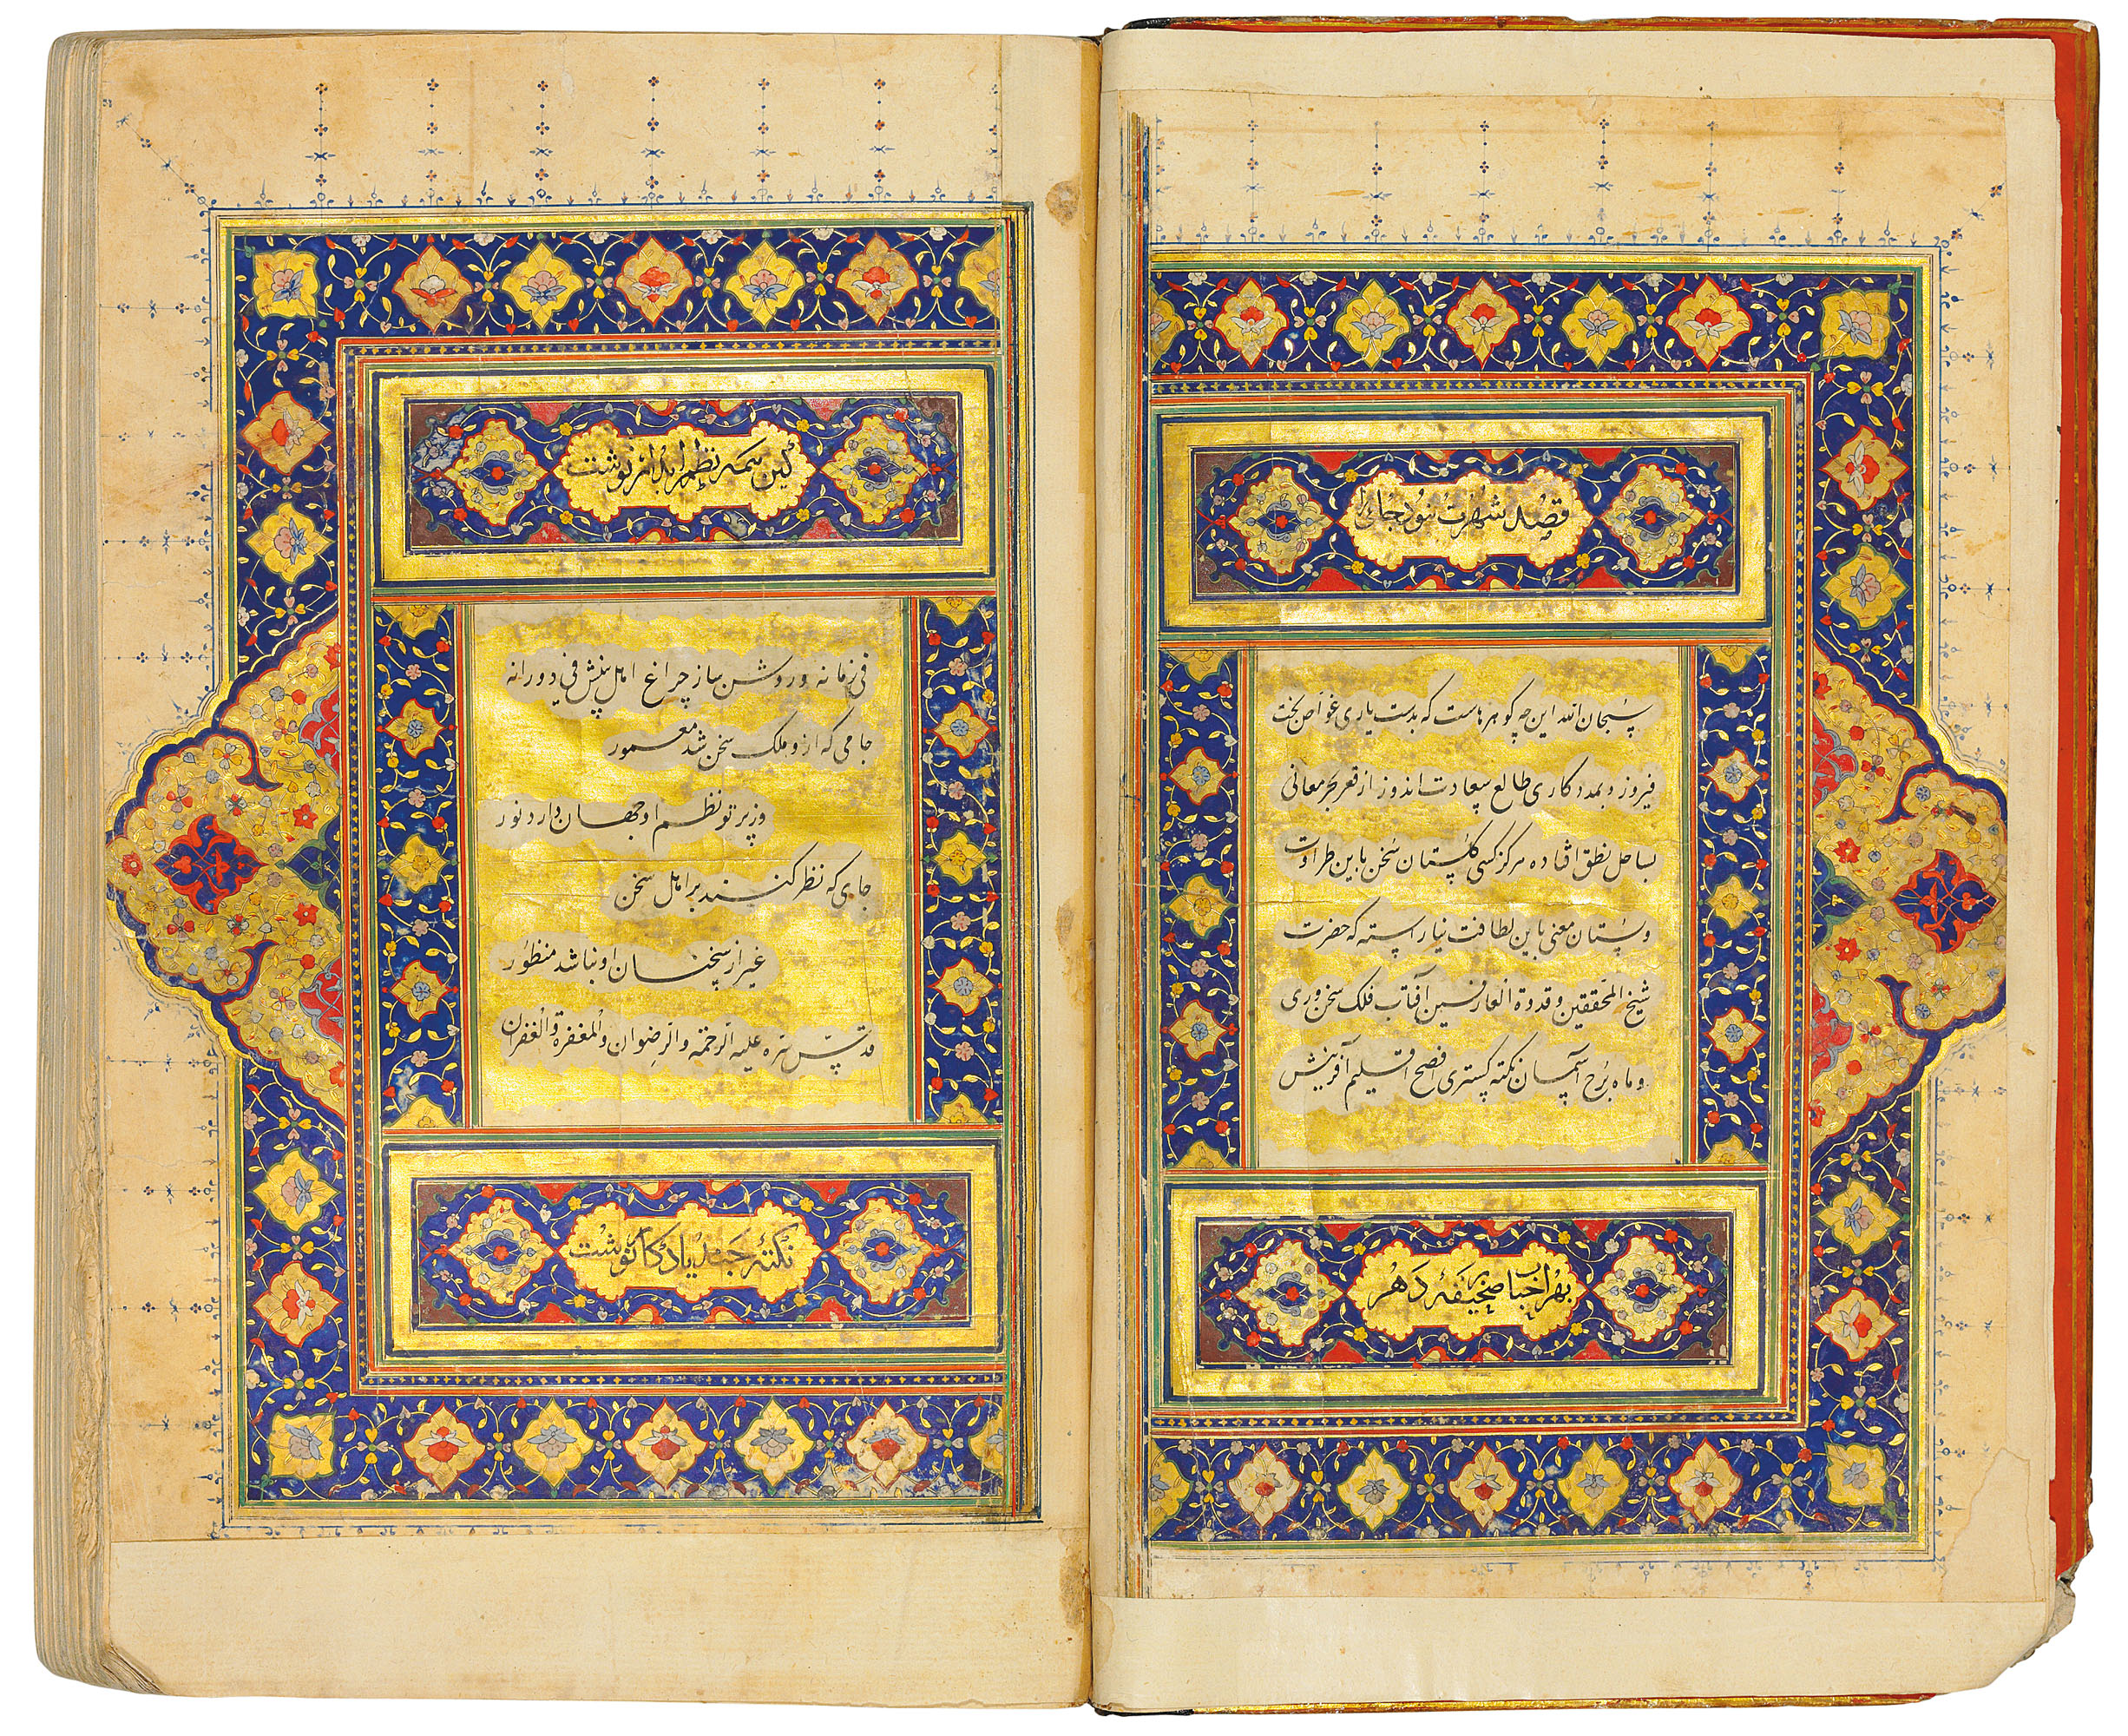 قصه شهرت نبود جائی را
سبحان الله این چه گوهرهاست که بدست یاری غواص بخت
فیروز و بمددکاری طالع سعادت اندوز از قعر بحر معانی
بساحل نطق افتاده هرگز کسی گلستان سخن باین طراوت
و بستان معنی باین لطافت نیاراسته که حضرت
شیخ المحققین و قدوة العارفین آفتاب فلک سخن وری
و ماه برج آسمان نکته گستری افصح اقلیم آفرینش
بهر احباب صحیفهٔ دهر
کین همه نظم آبدار نوشت
فی زمانه و روشن ساز چراغ اهل بینش فی دورانه
جامی که ازو ملک سخن شد معمور
وز پرتو نظم او جهان دارد نور
جای که نظر کنند بر اهل سخن
غیر از سخنان او نباشد منظور
قدس سره علیه الرحمة والرضوان والمغفرة والغفران
نکتهٔ چند یادگار نوشت